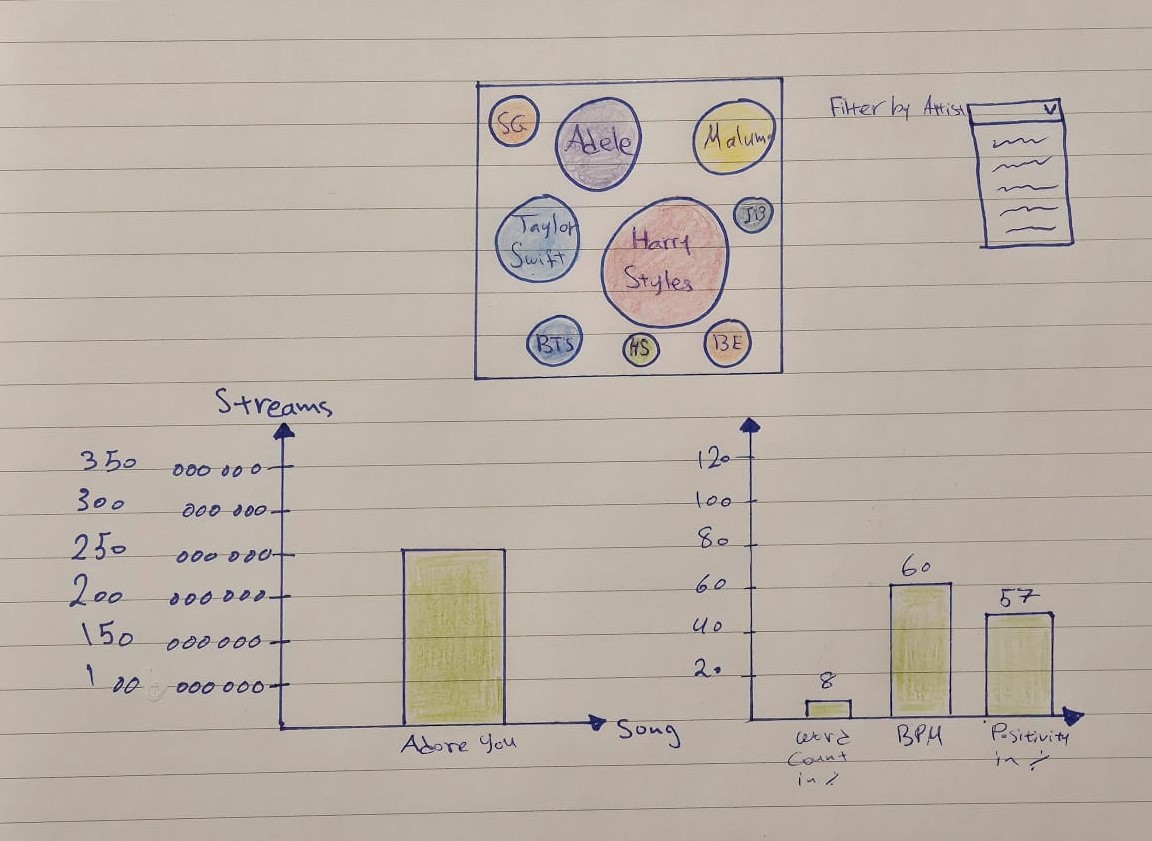 SG
Adele
Maluma
Filter by Artist
Taylor
Swift
Harry
Styles
JB
BTS
HS
BE
Streams
350 000 000
300 000 000
250 000 000
200 000 000
150 000 000
100 000 000
Adore You
Song
120
100
80
60
40
20
8
60
57
Word
Count
in %
BPM
Positivity
in %